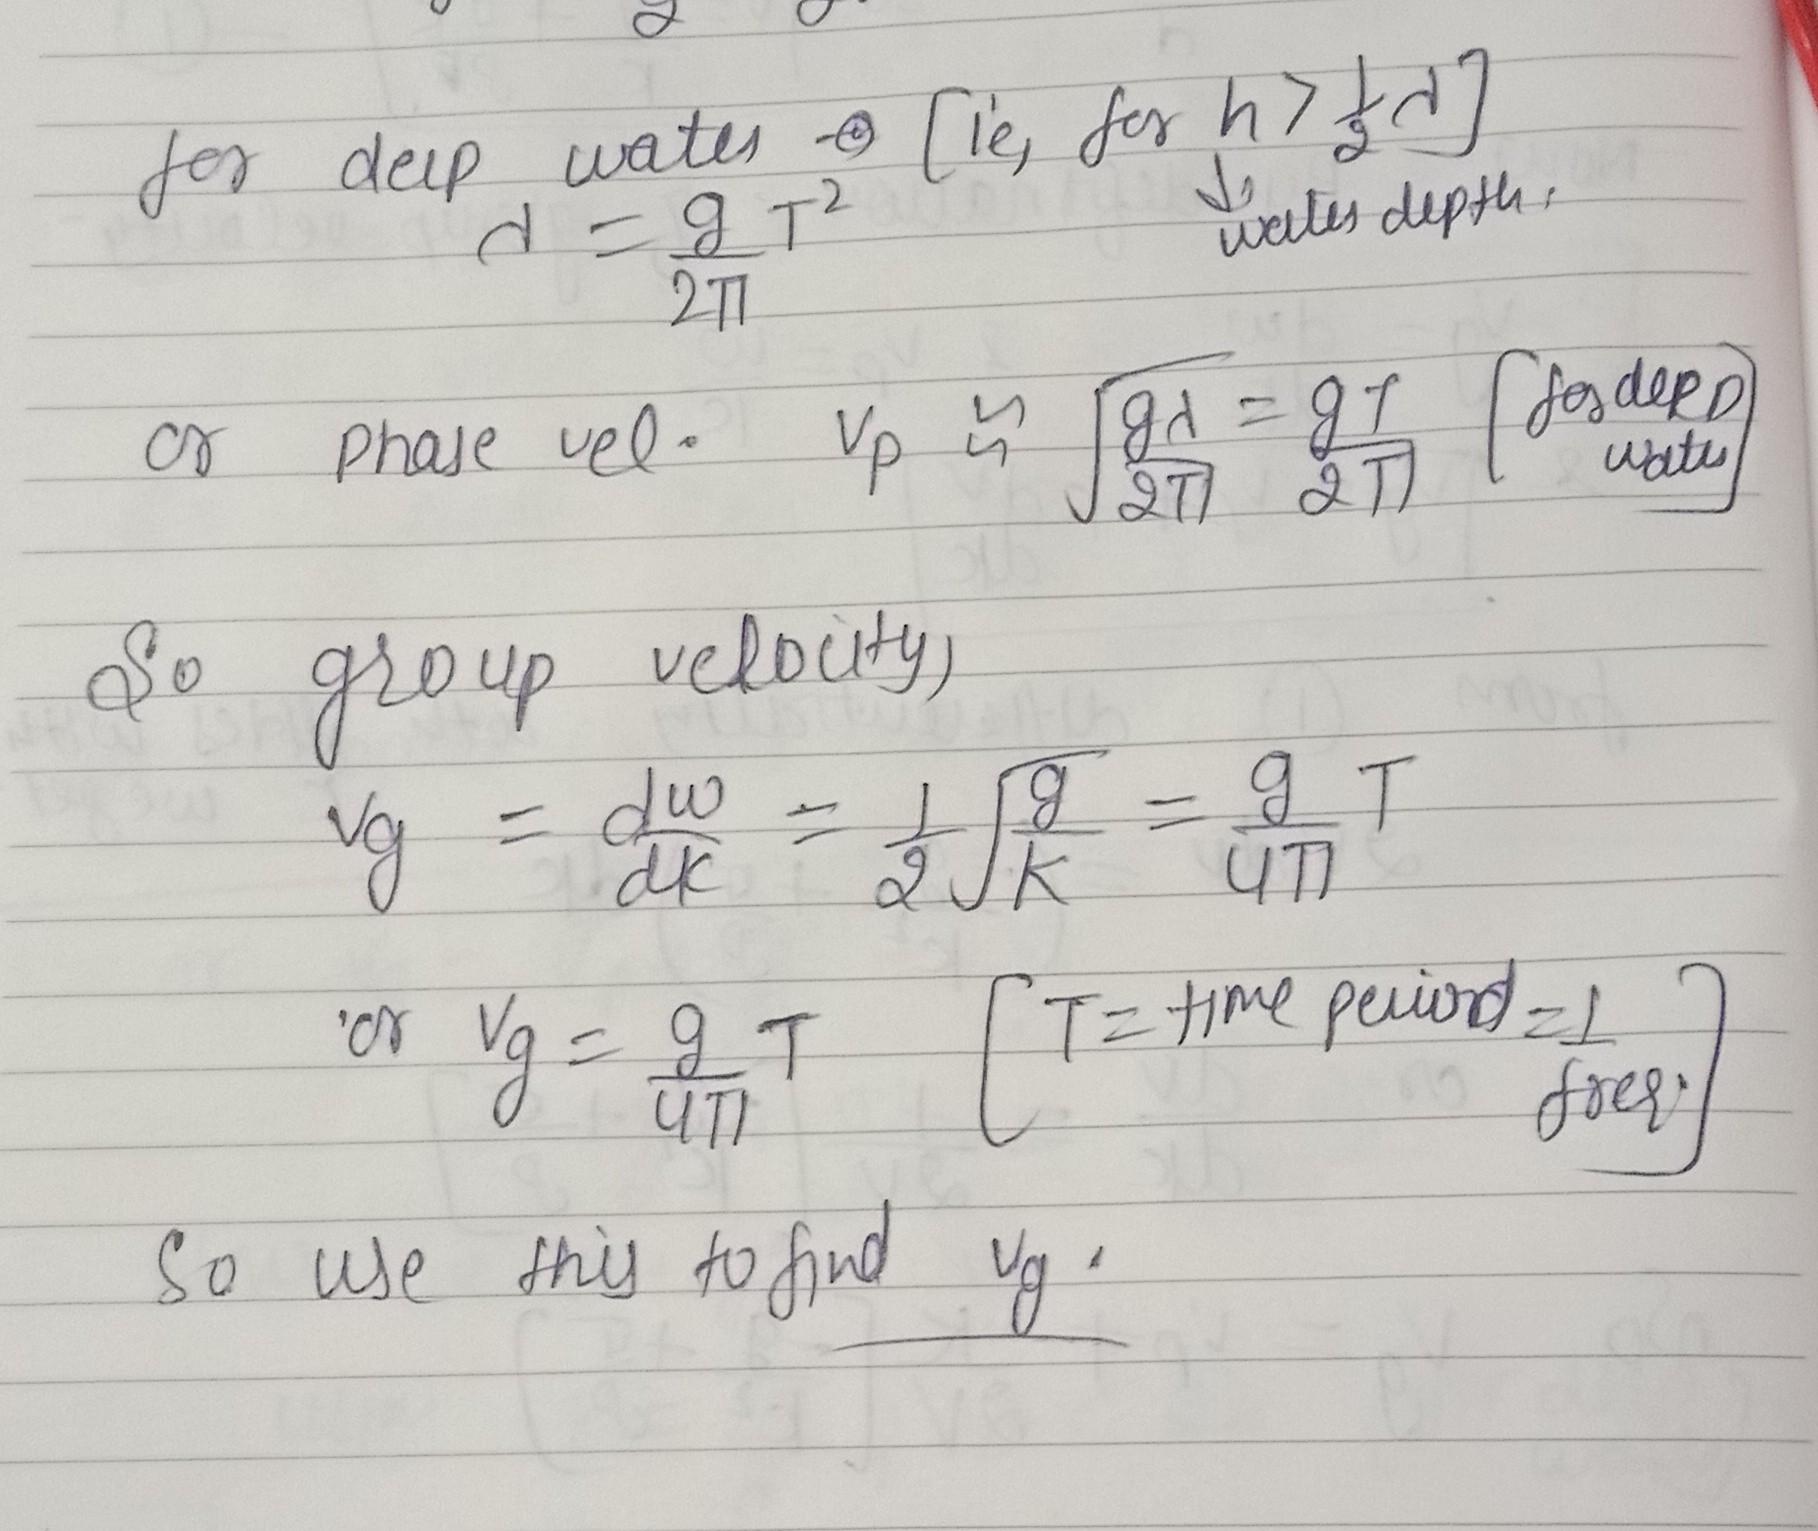 for deep water → [ie, for h > 1/2 λ]
↓
water depth.
λ = g/2π T²
or phase vel. Vp ≈ √(gλ/2π) = gT/2π [for deep water]
So group velocity,
Vg = dω/dk = 1/2 √(g/k) = g/4π T
or Vg = g/4π T [T = time period = 1/freq.]
So use this to find Vg.